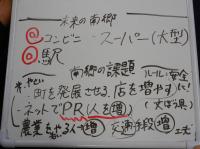 未来の南郷
コンビニ ・スーパー(大型)
駅
南郷の課題 ルール・安全
・町を発展させる、店を増やす
・ネットでPR(人を増)
農業をする人増 交通手段増 工夫